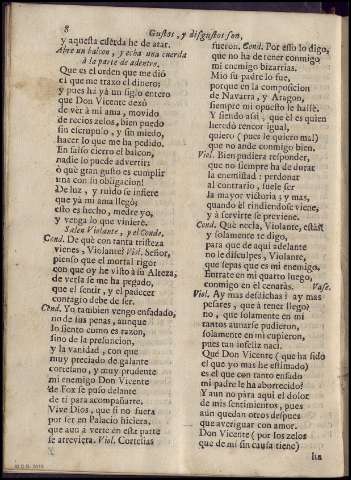 8
Gustos, y disgustos son,
y aquesta cuerda he de atar.
Abre un balcon, y echa una cuerda
à la parte de adentro.
Que es el orden que me diò
el que me traxo el dinero;
y pues hà yà un siglo entero
que Don Vicente dexò
de ver à mi ama, movido
de recios zelos, bien puedo
sin escrupulo, y sin miedo,
hacer lo que me ha pedido.
En falso cierro el balcon,
nadie lo puede advertir:
ò què gran gusto es cumplir
una con su obligacion!
De luz, y ruido se infiere
que yà mi ama llegò:
esto es hecho, medre yo,
y venga lo que viniere.
Salen Violante, y el Conde.
Cond. De què con tanta tristeza
vienes, Violante? Viol. Señor,
pienso que el mortal rigor
con que oy he visto à su Alteza,
de verla se me ha pegado,
que el sentir, y el padecer
contagio debe de ser.
Cond. Yo tambien vengo enfadado,
no de sus penas, aunque
lo siento como es razon,
sino de la presuncion,
y la vanidad, con que
muy preciado de galante
cortesano, y muy prudente
mi enemigo Don Vicente
de Fox se puso delante
de ti para acompañarte.
Vive Dios, que si no fuera
por ser en Palacio hiciera,
que aun à verte en esta parte
se atreviera. Viol. Cortesias
fueron. Cond. Por esso lo digo,
que no ha de tener conmigo
mi enemigo bizarrias.
Mio su padre lo fue,
porque en la composicion
de Navarra, y Aragon,
siempre mi opuesto le hallè.
Y siendo assi, que èl es quien
heredò rencor igual,
quiero (pues le quiero mal)
que no ande conmigo bien.
Viol. Bien pudiera responder,
que no siempre ha de durar
la enemistad: perdonar
al contrario, suele ser
la mayor victoria; y mas,
quando èl rindiendose viene,
y à servirte se previene.
Cond. Què necia, Violante, estàs!
y solamente te digo,
para que de aqui adelante
no le disculpes, Violante,
que sepas que es mi enemigo.
Entrate en mi quarto luego,
conmigo en èl cenaràs. Vase.
Viol. Ay mas desdichas! ay mas
pesares, que à tener llego!
no, que solamente en mi
tantos aunarse pudieron,
solamente en mi cupieron,
pues tan infeliz naci.
Què Don Vicente (que ha sido
el que yo mas he estimado)
es el que con tanto enfado
mi padre le ha aborrecido?
Y aun no para aqui el dolor
de mis sentimientos, pues
aun quedan otros despues
que averiguar con amor.
Don Vicente (por los zelos
que de mi sin causa tiene)
ha